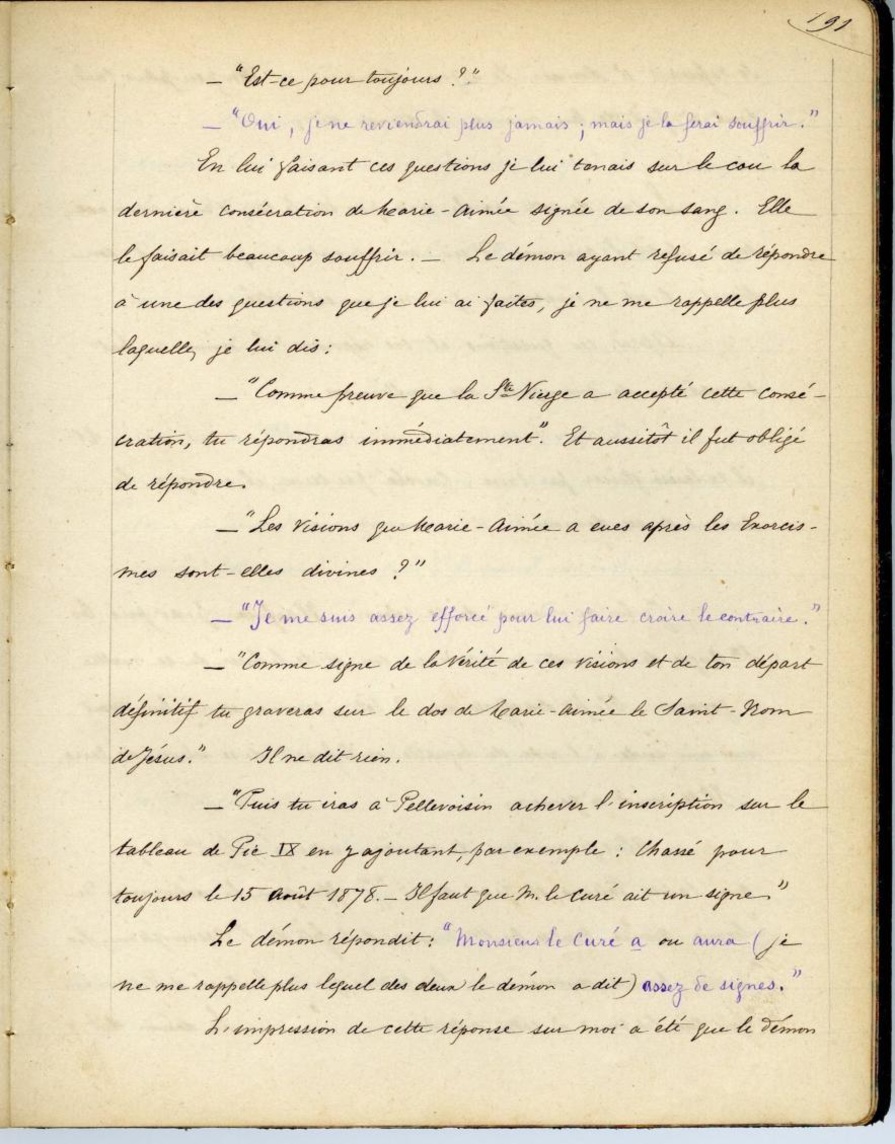 191
— "Est-ce pour toujours ?"
— "Oui, je ne reviendrai plus jamais ; mais je la ferai souffrir."
En lui faisant ces questions je lui tenais sur le cou la
dernière consécration de Marie-Aimée signée de son sang. Elle
le faisait beaucoup souffrir. — Le démon ayant refusé de répondre
à une des questions que je lui ai faites, je ne me rappelle plus
laquelle, je lui dis :
— "Comme preuve que la Ste Vierge a accepté cette consé-
cration, tu répondras immédiatement". Et aussitôt il fut obligé
de répondre.
— "Les visions que Marie-Aimée a eues après les Exorcis-
mes sont-elles divines ?"
— "Je me suis assez efforcé pour lui faire croire le contraire."
— "Comme signe de la vérité de ces visions et de ton départ
définitif tu graveras sur le dos de Marie-Aimée le Saint-Nom
de Jésus." Il ne dit rien.
— "Puis tu iras à Pellevoisin achever l'inscription sur le
tableau de Pie IX en y ajoutant, par exemple : Chassé pour
toujours le 15 Août 1878. — Il faut que M. le Curé ait un signe."
Le démon répondit : "Monsieur le Curé a ou aura (je
ne me rappelle plus lequel des deux le démon a dit) assez de signes."
L'impression de cette réponse sur moi a été que le démon